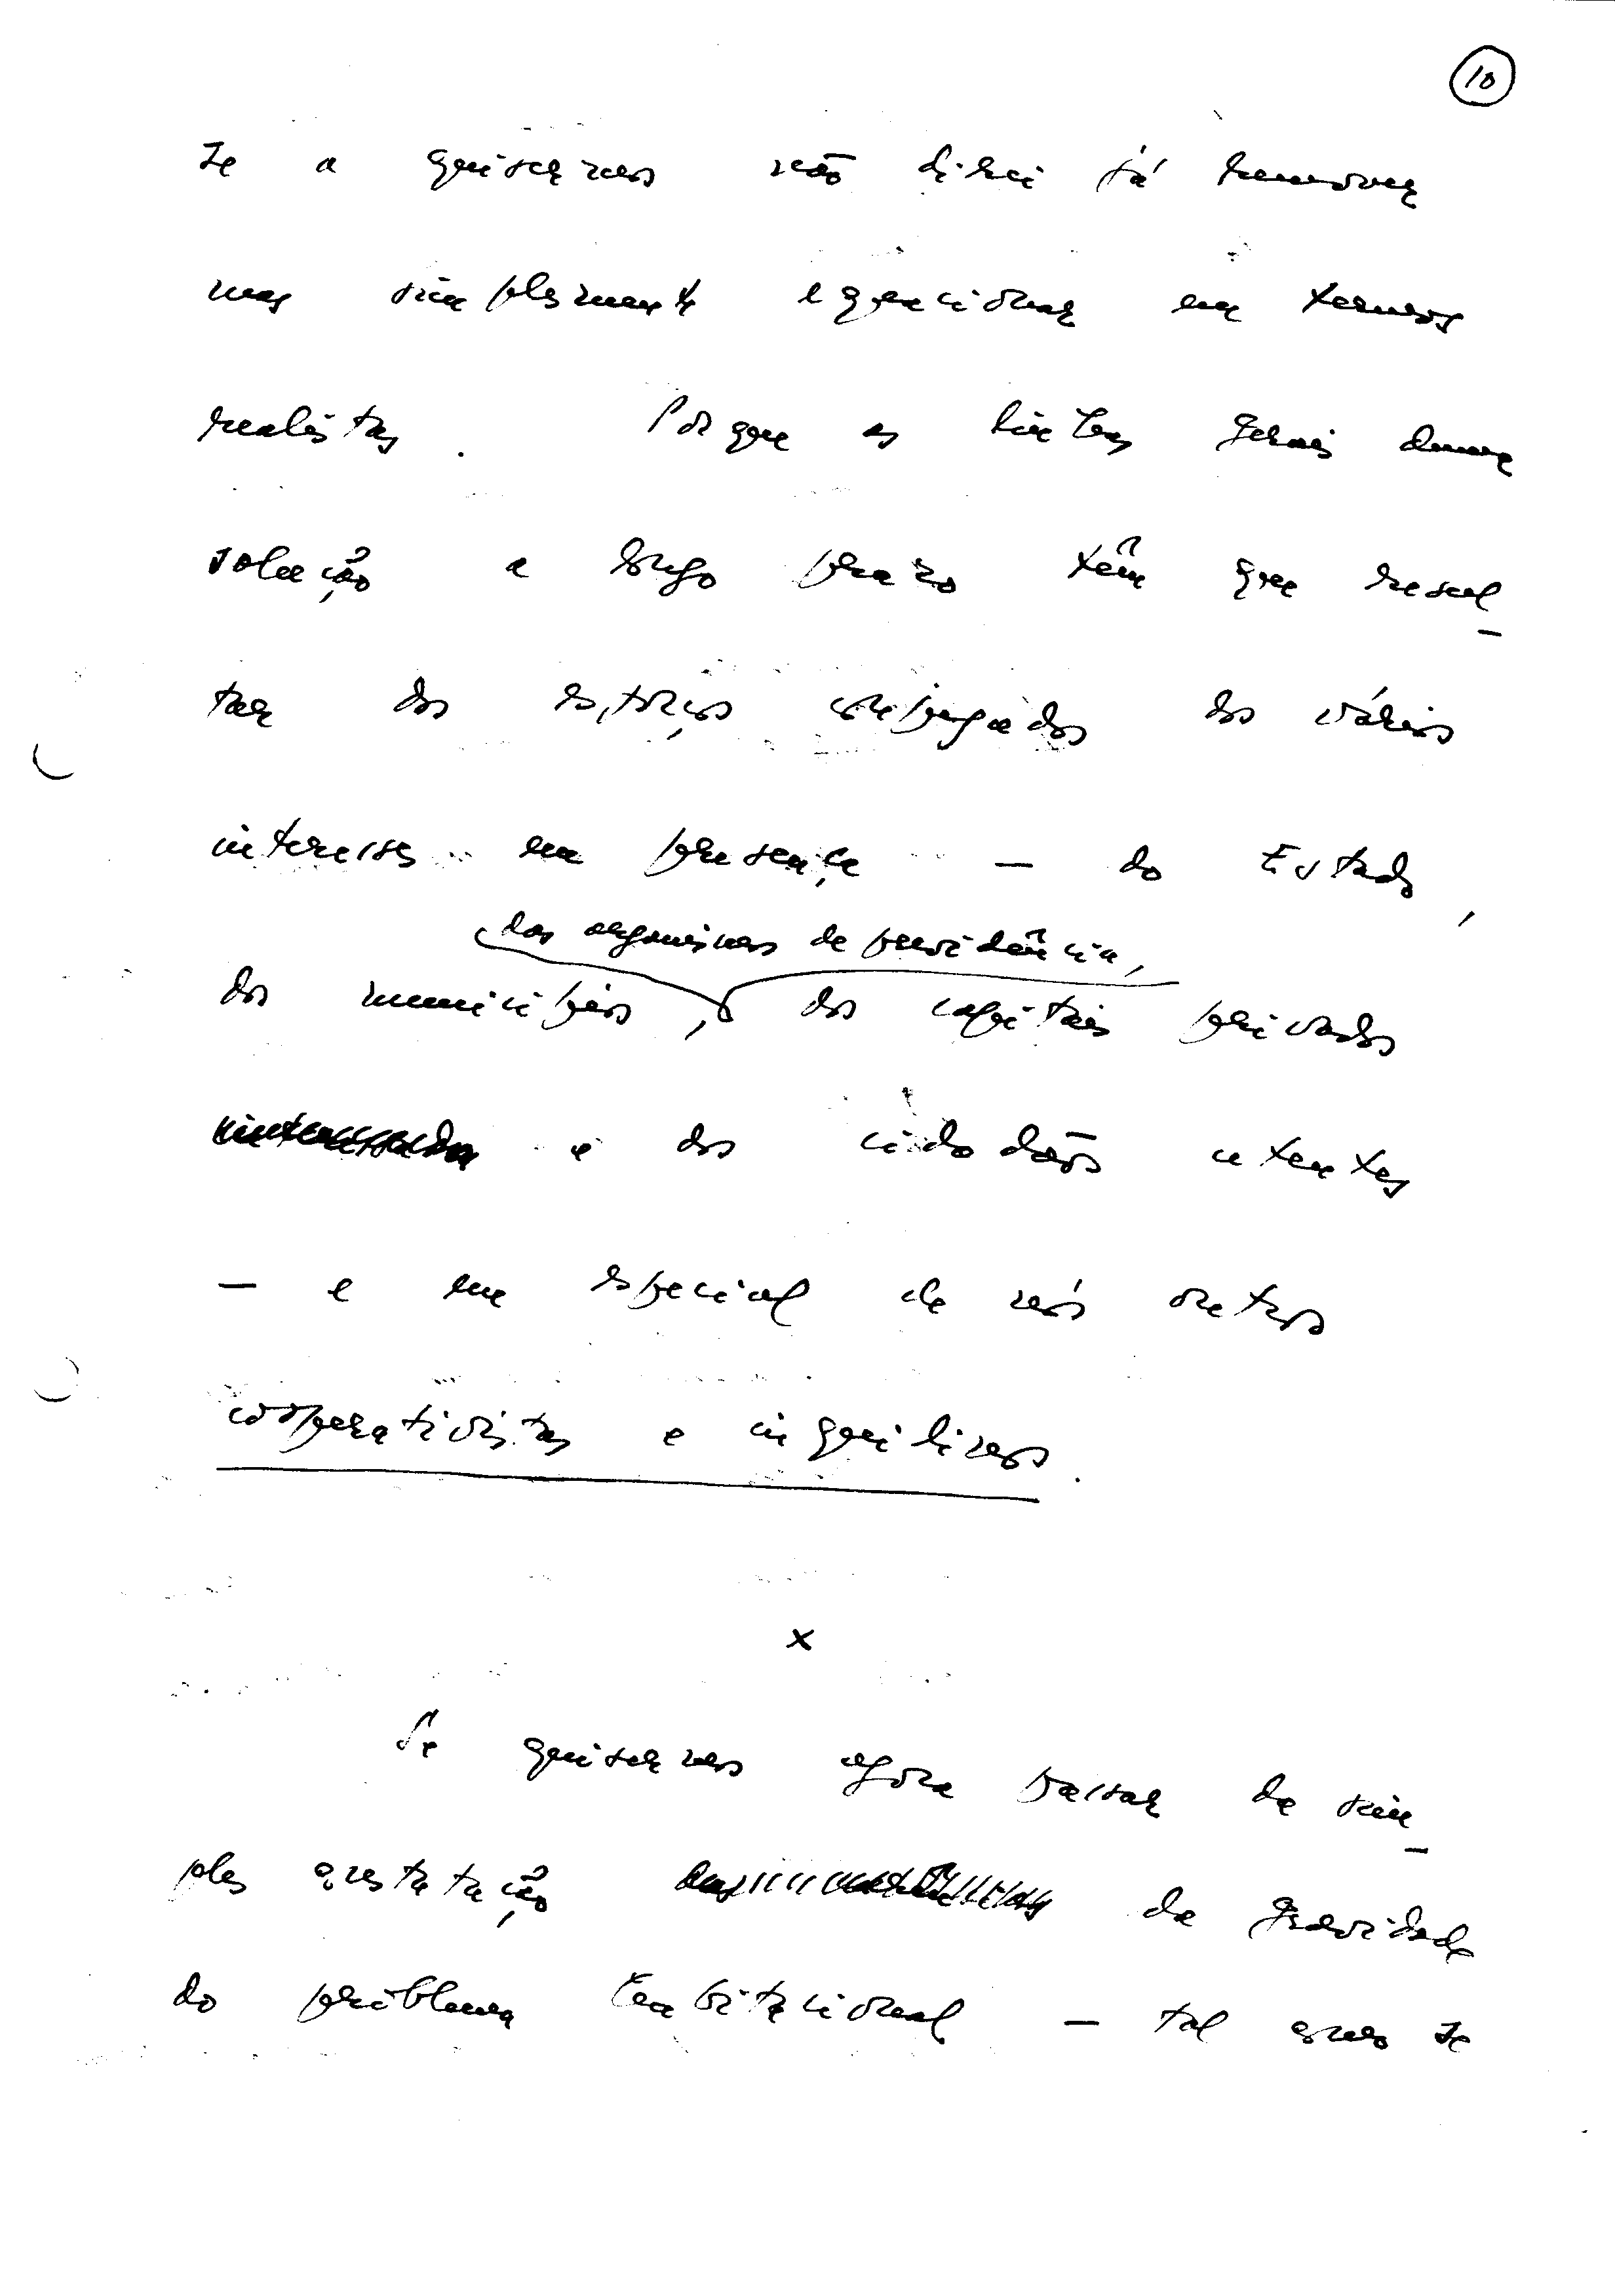 10
se a quisermos não direi já remover
mas simplesmente equacionar em termos
realistas. Porque as linhas gerais duma
solução a longo prazo têm que resul-
tar dos esforços conjugados dos vários
interesses em presença — do Estado,
dos organismos de previdência,
dos municípios, dos capitais privados
e dos cidadãos utentes
— e em especial de nós outros
cooperativistas e inquilinos.
x
Se quisermos agora passar da sim-
ples constatação da gravidade
do problema habitacional — tal como se